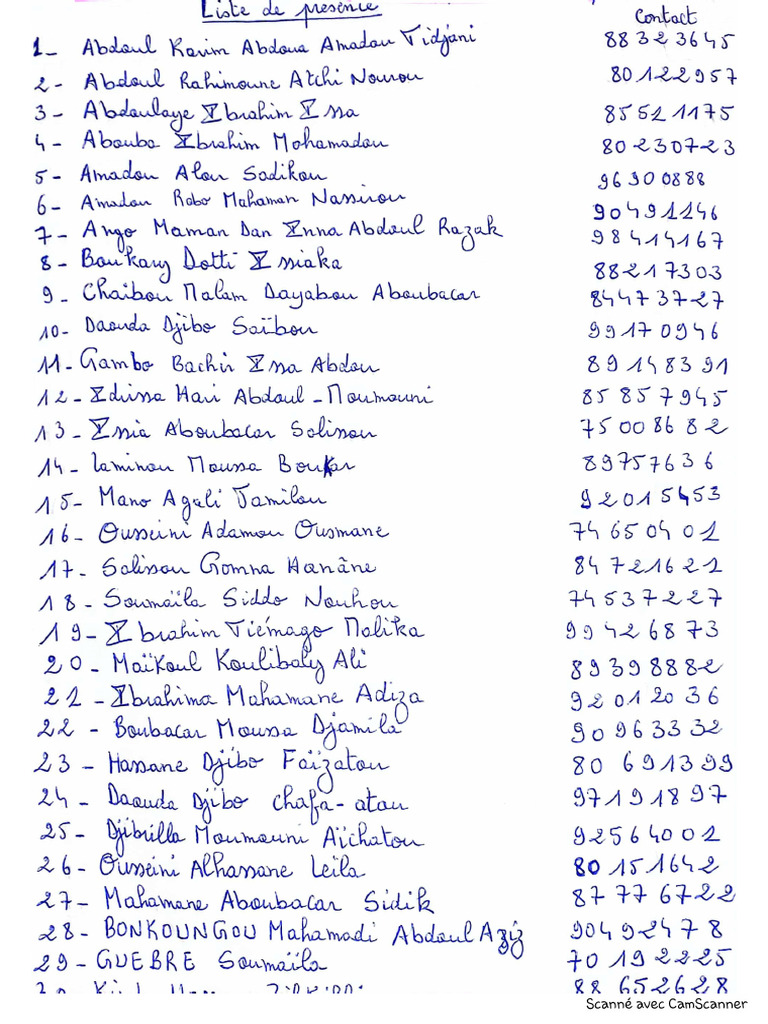 Liste de présence
Contact
1- Abdoul Karim Abdoua Amadou Tidjani 88323645
2- Abdoul Rahimoune Atchi Nourou 80122957
3- Abdoulaye Ibrahim Issa 85521175
4- Abouba Ibrahim Mohamadou 80230723
5- Amadou Alou Sadikou 96300888
6- Amadou Robo Mahaman Nassirou 90491246
7- Ango Maman Dan Inna Abdoul Razak 98414167
8- Boukary Dotti Issiaka 88217303
9- Chaibou Malam Dayabou Aboubacar 84473727
10- Daouda Djibo Saïbou 99170946
11- Gambo Bachir Issa Abdou 89148391
12- Idrissa Hari Abdoul-Moumouni 85857945
13- Issia Aboubacar Salissou 75008682
14- Laminou Moussa Boukar 89757636
15- Mano Agali Jamilou 92015453
16- Ousseini Adamou Ousmane 74650401
17- Salissou Gomna Hanâne 84721621
18- Soumaïla Siddo Nouhou 74537227
19- Ibrahim Tiémago Malika 99426873
20- Maïkoul Koulibaly Ali 89398882
21- Ibrahima Mahamane Adiza 92012036
22- Boubacar Moussa Djamila 90963332
23- Hassane Djibo Faïzatou 80691399
24- Daouda Djibo Chafa-atou 97191897
25- Djibrilla Moumouni Aïchatou 92564001
26- Ousseini Alhassane Leila 80151642
27- Mahamane Aboubacar Sidik 87776722
28- BONKOUNGOU Mahamadi Abdoul Aziz 90492478
29- GUEBRE Soumaïla 70192225
88652628
Scanné avec CamScanner